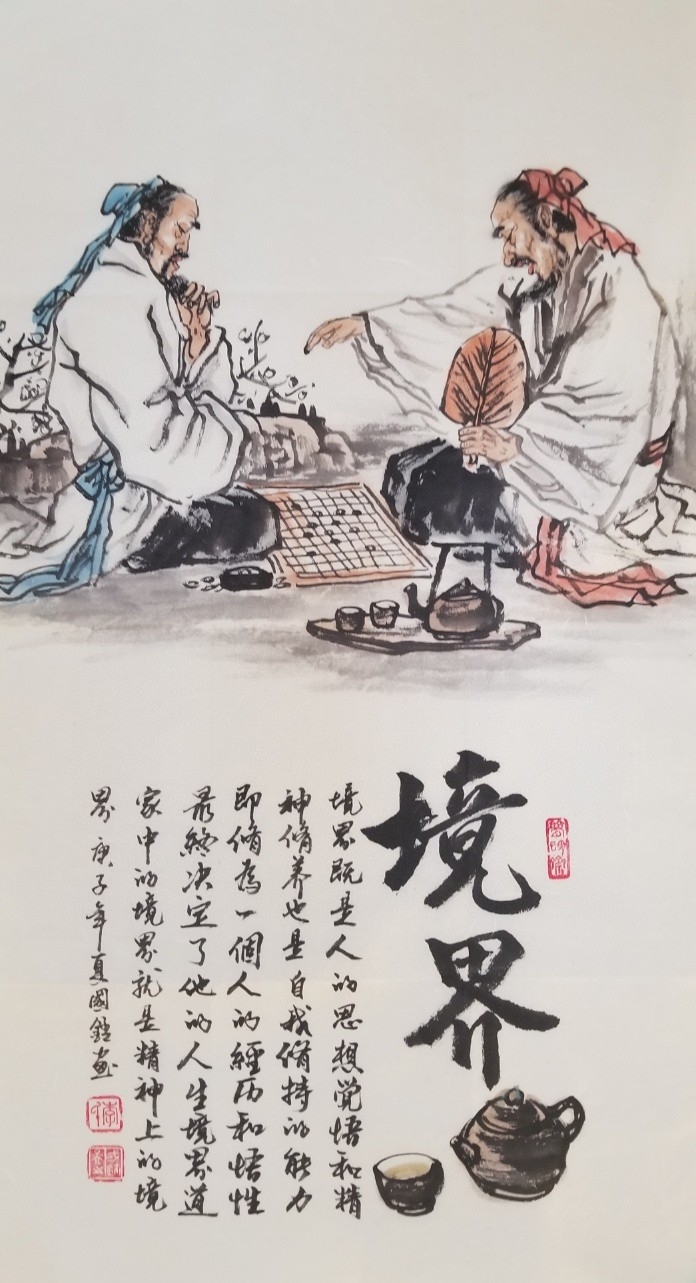 境界
境界既是人的思想觉悟和精
神脩养也是自我脩持的能力
即脩為一個人的經历和悟性
最終决定了他的人生境界道
家中的境界就是精神上的境
界 庚子年夏國鍇画